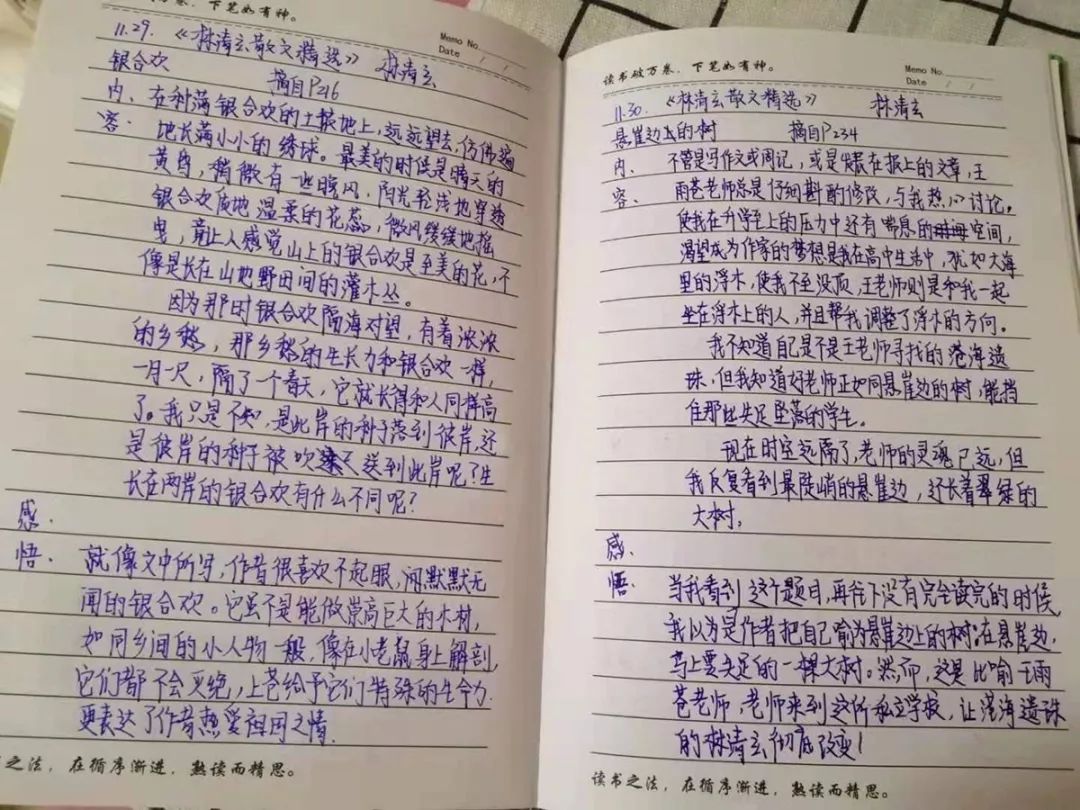 万卷，下笔如有神。
Memo No.
Date / /
11.29. 《林清玄散文精选》 林清玄
银合欢 摘自P216
内、在种满银合欢的土坡地上，远远望去，仿佛遍
容、地长满小小的绣球。最美的时候是晴天的
黄昏，稍微有一些晚风，阳光轻浅地穿透
银合欢质地温柔的花蕊，微风缓缓地摇
曳，竟让人感觉山上的银合欢是至美的花，不
像是长在山地野田间的灌木丛。
因为那时银合欢隔海对望，有着浓浓
的乡愁，那乡愁的生长力和银合欢一样，
一月一尺，隔了一个春天，它就长得和人同样高
了。我只是不知，是此岸的种子落到彼岸，还
是彼岸的种子被吹送到此岸呢？生
长在两岸的银合欢有什么不同呢？
感、
悟、就像文中所写，作者很喜欢不起眼，默默无
闻的银合欢。它虽不是能做崇高巨大的木材，
如同乡间的小人物一般，像在小老鼠身上解剖，
它们都不会灭绝，上苍给予它们特殊的生命力.
更表达了作者热爱祖国之情.
之法，在循序渐进，熟读而精思。
读书破万卷，下笔如有神。
Memo No.
Date / /
11.30. 《林清玄散文精选》 林清玄
悬崖边上的树 摘自P234
内、不管是写作文或周记，或是发表在报上的文章，王
容、雨苍老师总是仔细斟酌修改，与我热心讨论。
使我在升学至上的压力中还有喘息的空间，
渴望成为作家的梦想是我在高中生活中，犹如大海
里的浮木，使我不至没顶，王老师则是和我一起
坐在浮木上的人，并且帮我调整了浮木的方向。
我不知道自己是不是王老师寻找的沧海遗
珠，但我知道好老师正如同悬崖边的树，能挡
住那些失足坠落的学生。
现在时空远隔了，老师的灵魂已远，但
我反复看到最陡峭的悬崖边，还长着翠绿的
大树，
感、
悟、当我看到这个题目，再往下没有完全读完的时候，
我以为是作者把自己喻为悬崖边上的树：在悬崖边，
马上要失足的一棵大树。然而，这是比喻王雨
苍老师，老师来到这所私立学校，让沧海遗珠
的林清玄彻底改变！
读书之法，在循序渐进，熟读而精思。